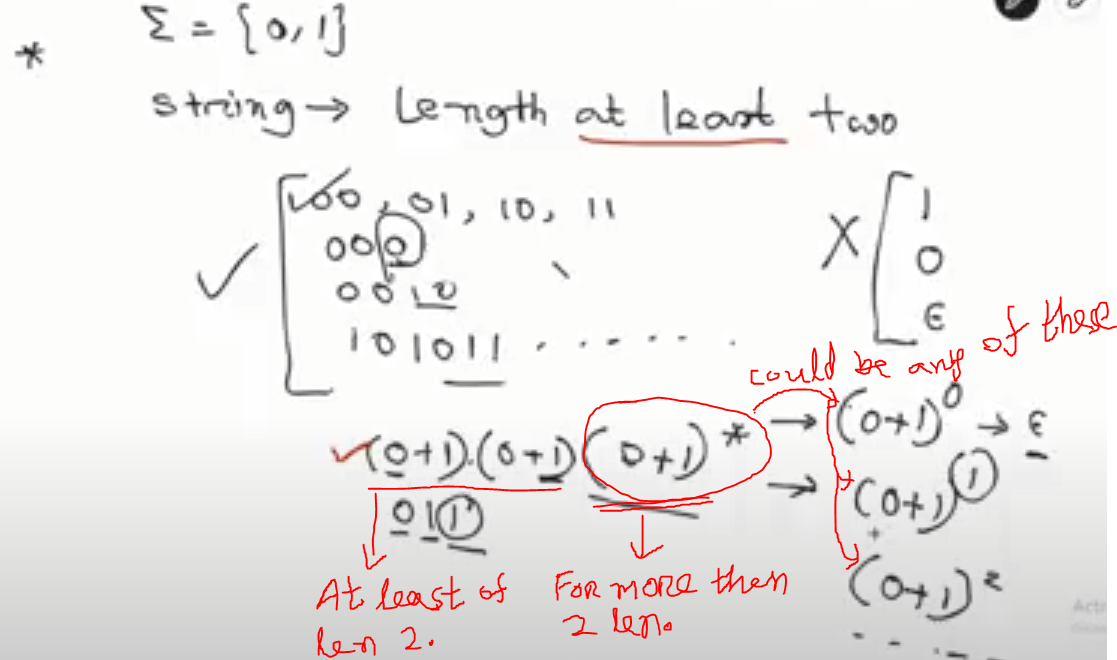 * Σ = {0,1}
string → Length at least two
00, 01, 10, 11
000
0010
101011 . . . . . .
X [ 1
0
ϵ
could be any of these
(0+1).(0+1)(0+1)* → (0+1)⁰ → ϵ
→ (0+1)¹
011
(0+1)²
. . . .
At least of
len 2.
For more then
2 len.